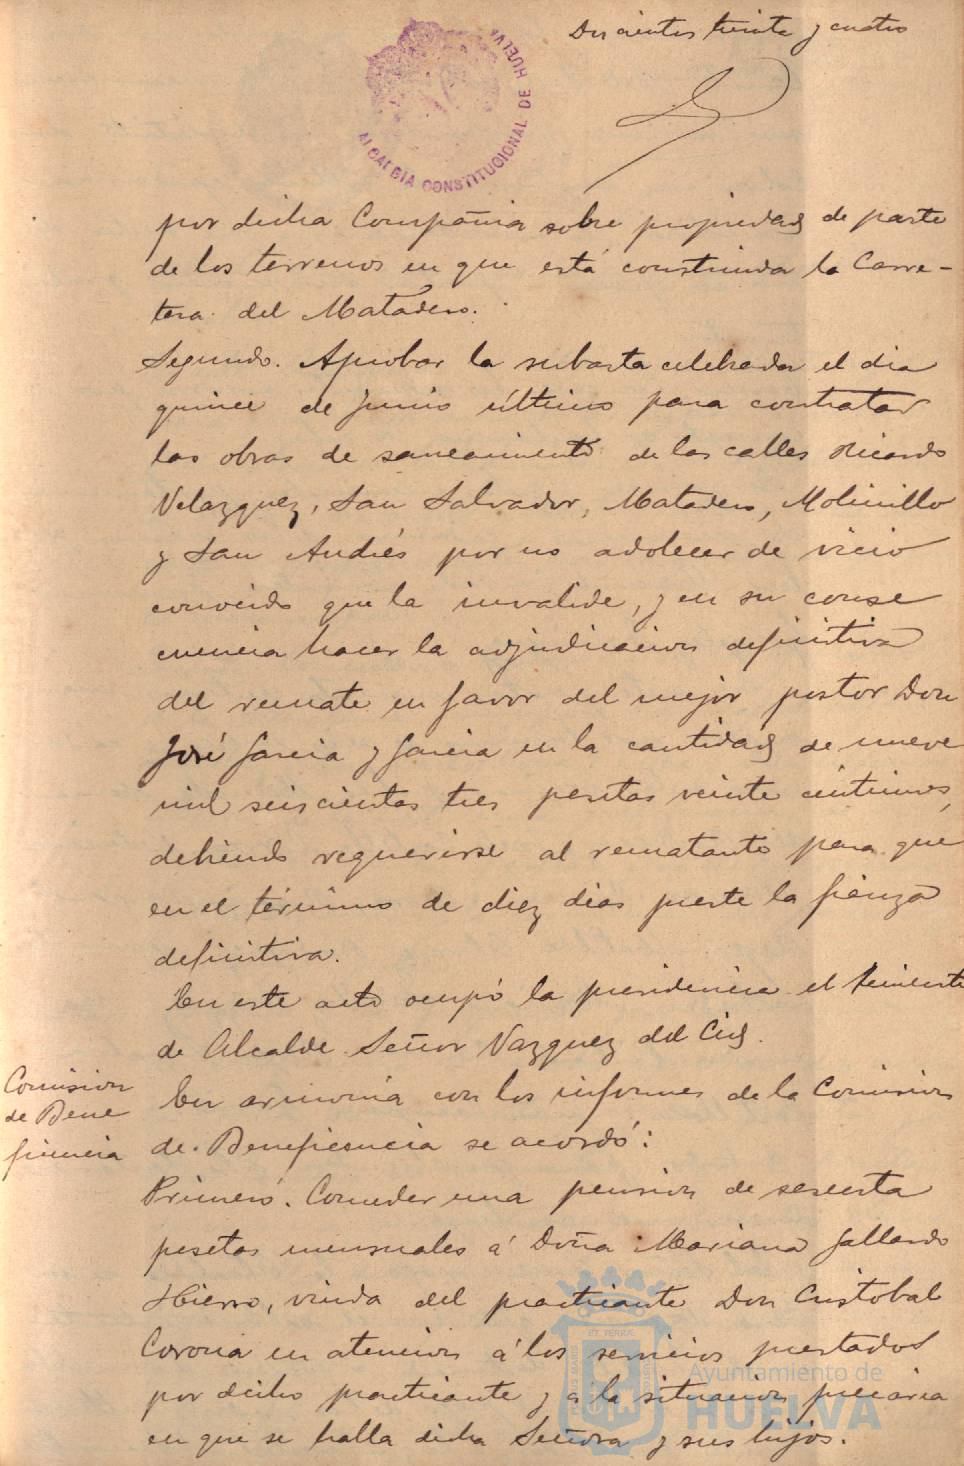 Doscientos treinta y cuatro
ALCALDIA CONSTITUCIONAL DE HUELVA
por dicha Compañia sobre propiedad de parte
de los terrenos en que está construida la Carre-
tera del Matadero.
Segundo. Aprobar la subasta celebrada el dia
quince de Junio último para contratar
las obras de saneamiento de las calles Ricardo
Velazquez, San Salvador, Matadero, Molinillo
y San Andrés por no adolecer de vicio
conocido que la invalide, y en su conse
cuencia hacer la adjudicacion definitiva
del remate en favor del mejor postor Don
José Garcia y Garcia en la cantidad de nueve
mil seiscientas tres pesetas veinte centimos,
debiendo requerirse al rematante para que
en el término de diez dias preste la fianza
definitiva.
En este acto ocupó la presidencia el teniente
de Alcalde Señor Vazquez del Cid.
Comision
de Bene
ficencia
En armonia con los informes de la Comision
de Beneficencia se acordó:
Primero. Conceder una pension de sesenta
pesetas mensuales á Doña Mariana Gallardo
Hierro, viuda del practicante Don Cristobal
Corona en atencion á los servicios prestados
por dicho practicante y á la situacion precaria
en que se halla dicha Señora y sus hijos.
Ayuntamiento de
HUELVA